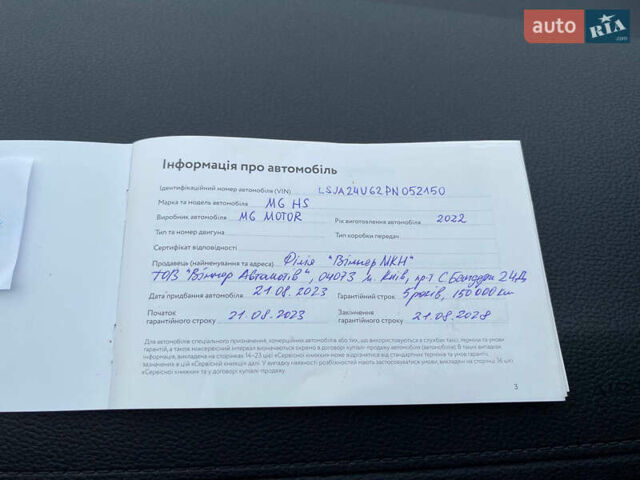 auto RIA.com
Інформація про автомобіль
Ідентифікаційний номер автомобіля (VIN) LSJA24U62PN052150
Марка та модель автомобіля MG HS
Виробник автомобіля MG MOTOR Рік виготовлення автомобіля 2022
Тип та номер двигуна Тип коробки передач
Сертифікат відповідності
Продавець (найменування та адреса) Філія "Віннер МКН"
ТОВ "Віннер Автомотів", 04073 м. Київ, пр-т С. Бандери 24Д
Дата придбання автомобіля 21.08.2023 Гарантійний строк 5 років, 150 000 км
Початок гарантійного строку 21.08.2023 Закінчення гарантійного строку 21.08.2028
Для автомобілів спеціального призначення, комерційних автомобілів або тих, що використовуються в службах таксі, терміни та умови
гарантій, а також міжсервісний інтервал визначаються окремо в договорі купівлі-продажу автомобіля (автомобілів). В таких випадках
інформація, викладена на сторінках 14–23 цієї «Сервісної книжки» може відрізнятися від стандартних термінів та умов гарантії,
зазначених в цій «Сервісній книжці» далі. У випадку наявності розбіжностей мають застосовуватися умови, викладені на сторінці 36 цієї
«Сервісної Книжки» та у договорі купівлі-продажу.
3